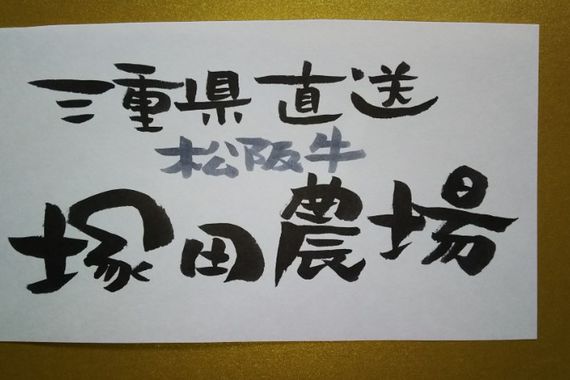 三重県直送
松阪牛
塚田農場